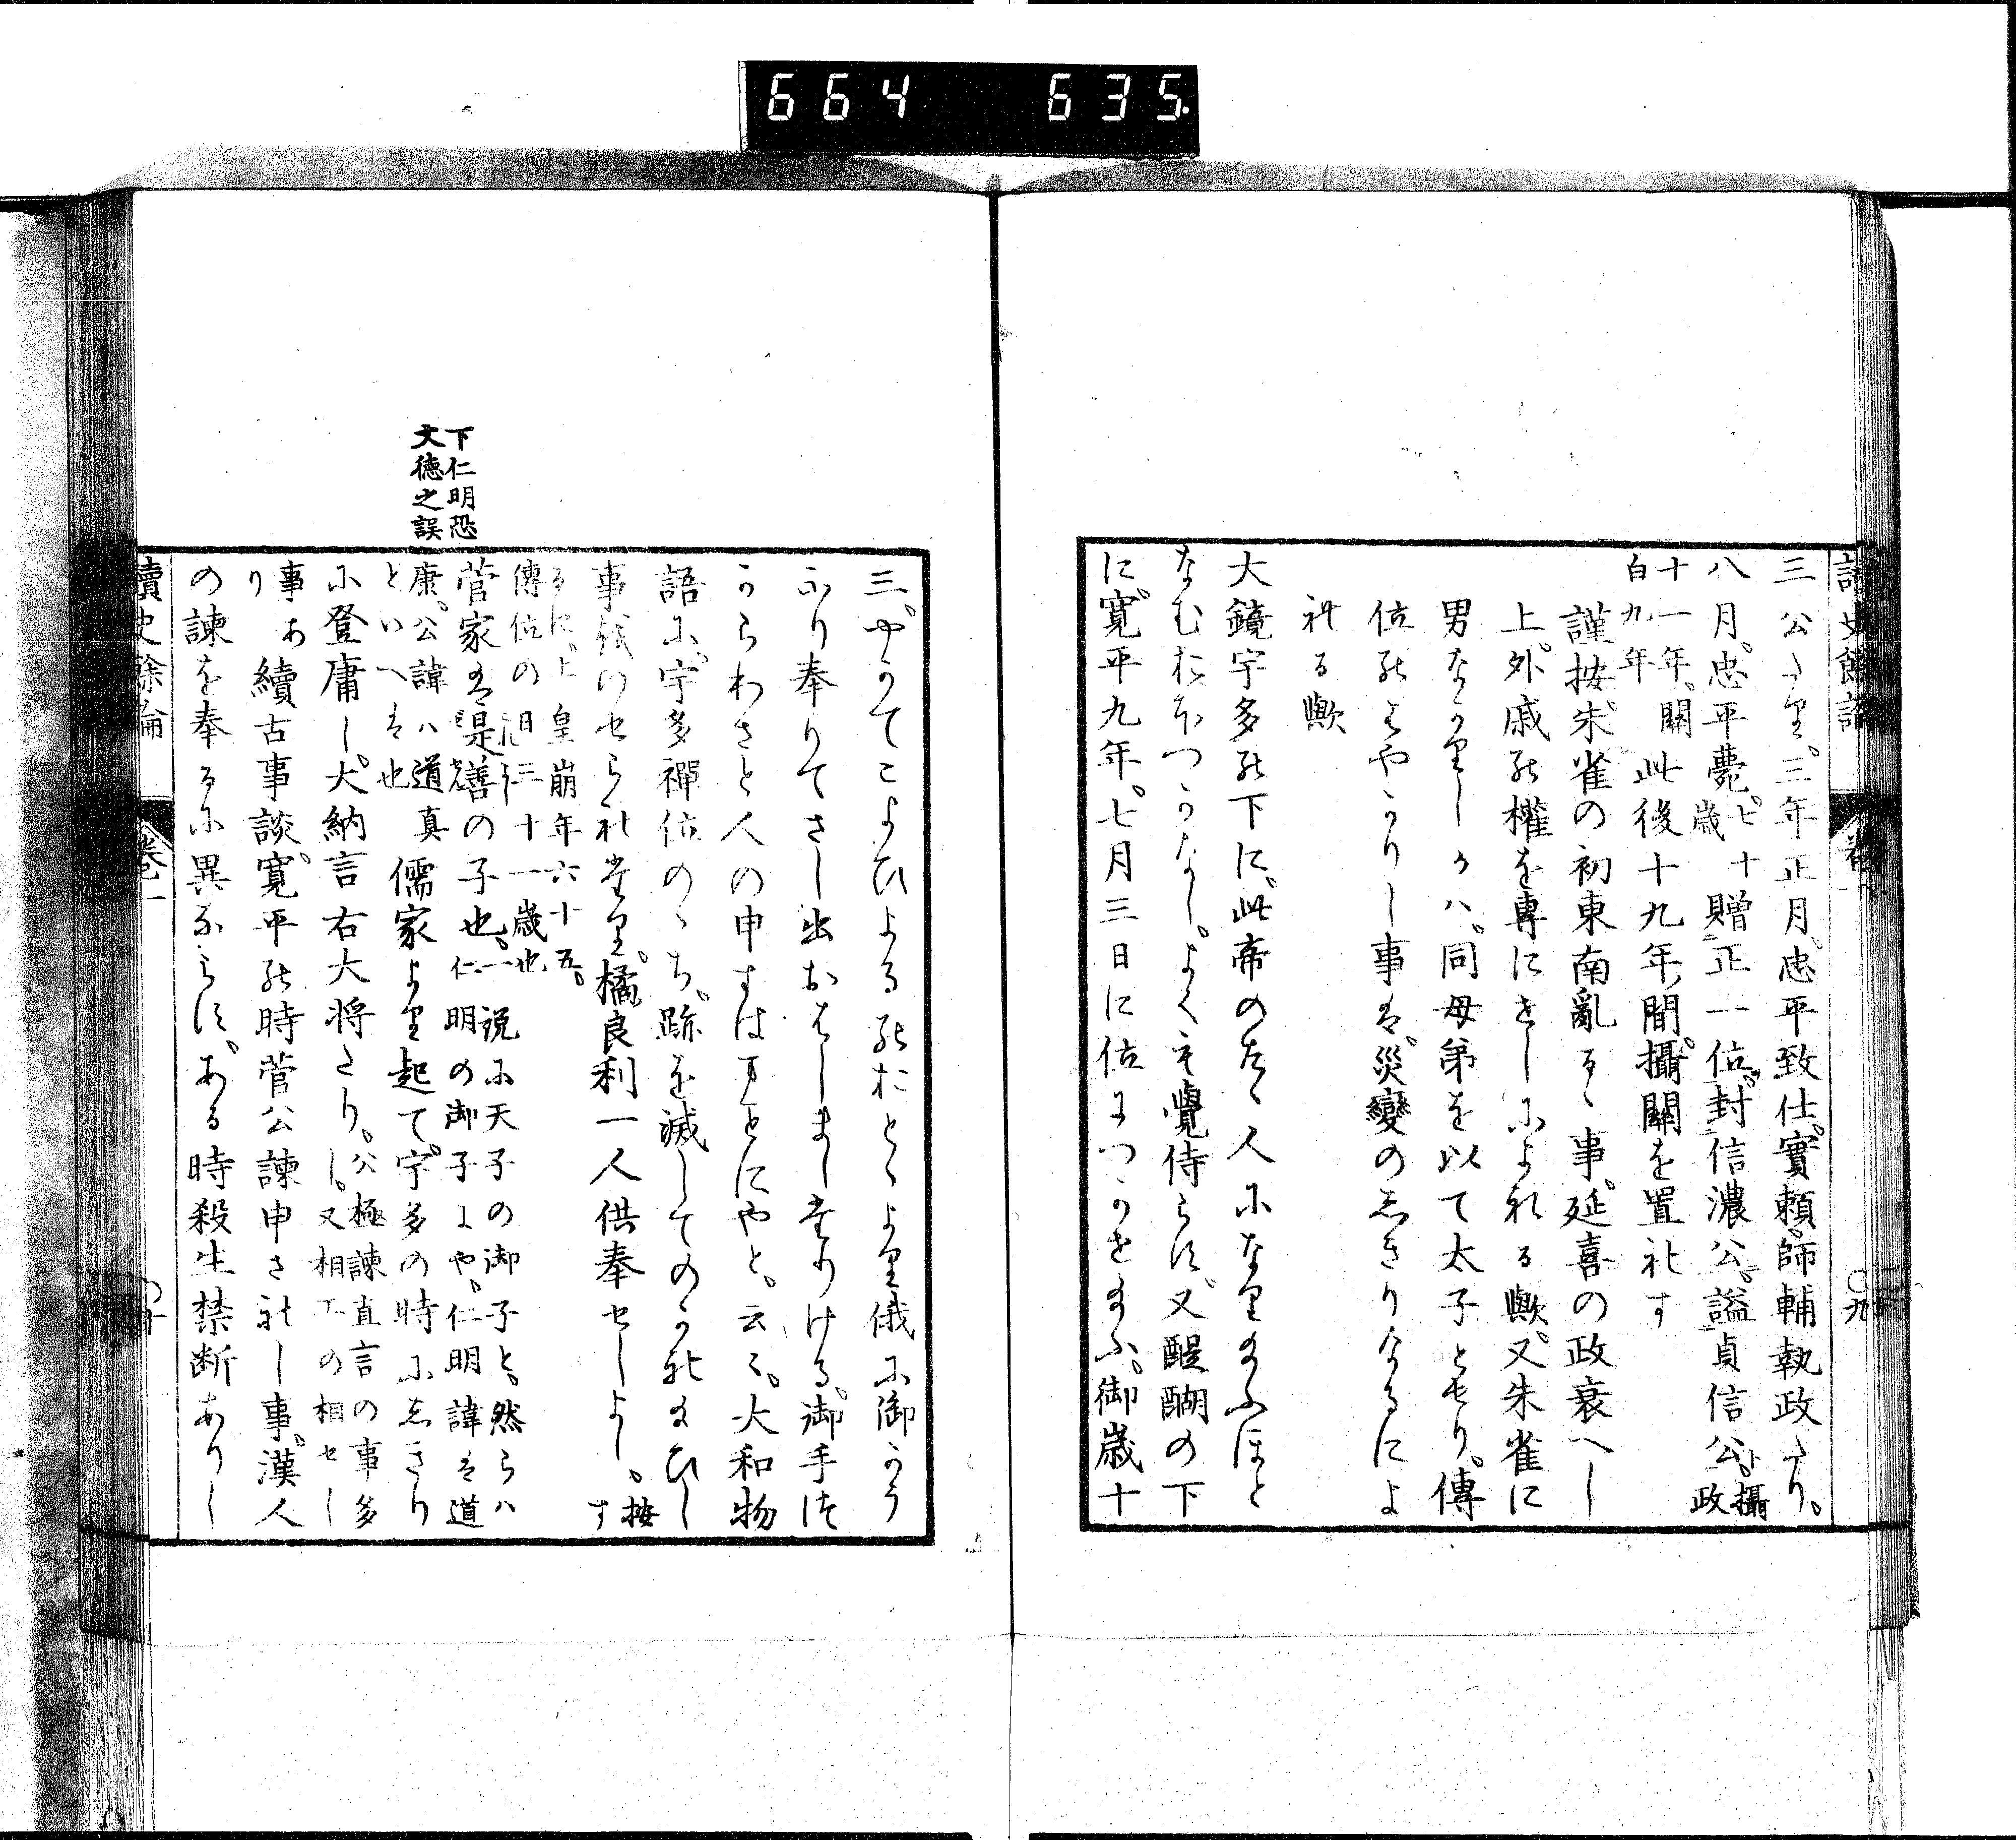 664 635
三公たり。三年正月忠平致仕。實頼師輔執政たり。
八月。忠平薨。七十歳 贈正一位。封信濃公。謚貞信公。攝政
十一年。關白九年 此後十九年。間。攝關を置れす
謹按。朱雀の初東南亂るゝ事。延喜の政衰へし
上。外戚の權を專にせしによれる歟。又朱雀に
男なかりしかハ。同母弟を以て太子とせり。傳
位のはやかりし事は。災變のしきりなるによ
れる歟
大鏡宇多の下に。此帝のたゝ人になり給ふほと
なむおほつかなし。よくも覺侍らす。又醍醐の下
に。寛平九年。七月三日に位につかせ給ふ。御歳十
三。やかてこよひよるのおとゝより俄に御かう
ふり奉りてさし出おはしましたりける。御手つ
からわさと人の申すはまことにやと。云々。大和物
語に。宇多禪位のゝち。跡を滅してのかれ給ひし
事伐のせられたり。橘良利一人供奉せしよし。按す
るに。上皇崩年六十五。
傳位の日三十一歳也
菅家は是善の子也。一説に天子の御子と。然らハ
仁明の御子にや。仁明諱は道
康。公諱ハ道真
といへは也 儒家より起て。宇多の時にしきり
に登庸し。大納言右大将たり。公極諫直言の事多
し。又相工の相せし
事あり 續古事談。寛平の時菅公諫申されし事。漢人
の諫を奉るに異ならす。ある時殺生禁断ありし
下仁明恐
文徳之誤
讀史餘論 卷一